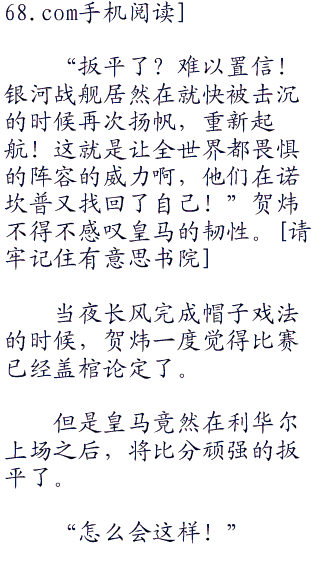 68.com手机阅读]
“扳平了？难以置信！
银河战舰居然在就快被击沉
的时候再次扬帆，重新起
航！这就是让全世界都畏惧
的阵容的威力啊，他们在诺
坎普又找回了自己！”贺炜
不得不感叹皇马的韧性。[请
牢记住有意思书院]
当夜长风完成帽子戏法
的时候，贺炜一度觉得比赛
已经盖棺论定了。
但是皇马竟然在利华尔
上场之后，将比分顽强的扳
平了。
“怎么会这样！”